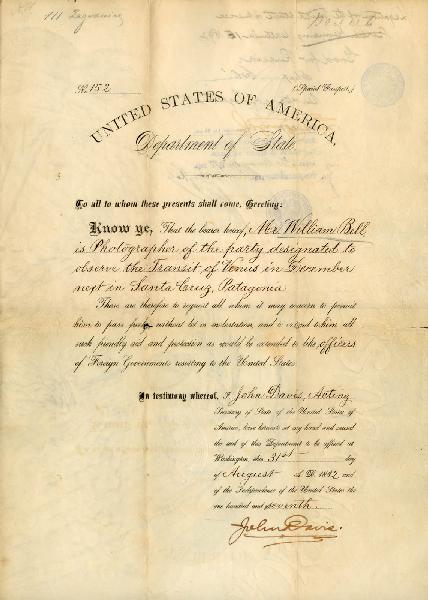 No. 152
(Special Passport.)
UNITED STATES OF AMERICA,
Department of State
To all to whom these presents shall come, Greeting:
Know ye, That the bearer hereof, Mr. William Bell
is Photographer of the party designated to
observe the Transit of Venus in December
next in Santa Cruz, Patagonia
These are therefore to request all whom it may concern to permit
him to pass freely without let or molestation, and to extend to him all
such friendly aid and protection as would be extended to like officers
of Foreign Governments resorting to the United States
In testimony whereof, I, John Davis, Acting
Secretary of State of the United States of
America, have hereunto set my hand and caused
the seal of this Department to be affixed at
Washington, this 31st day
of August A.D. 1882, and
of the Independence of the United States the
one hundred and seventh.
John Davis.